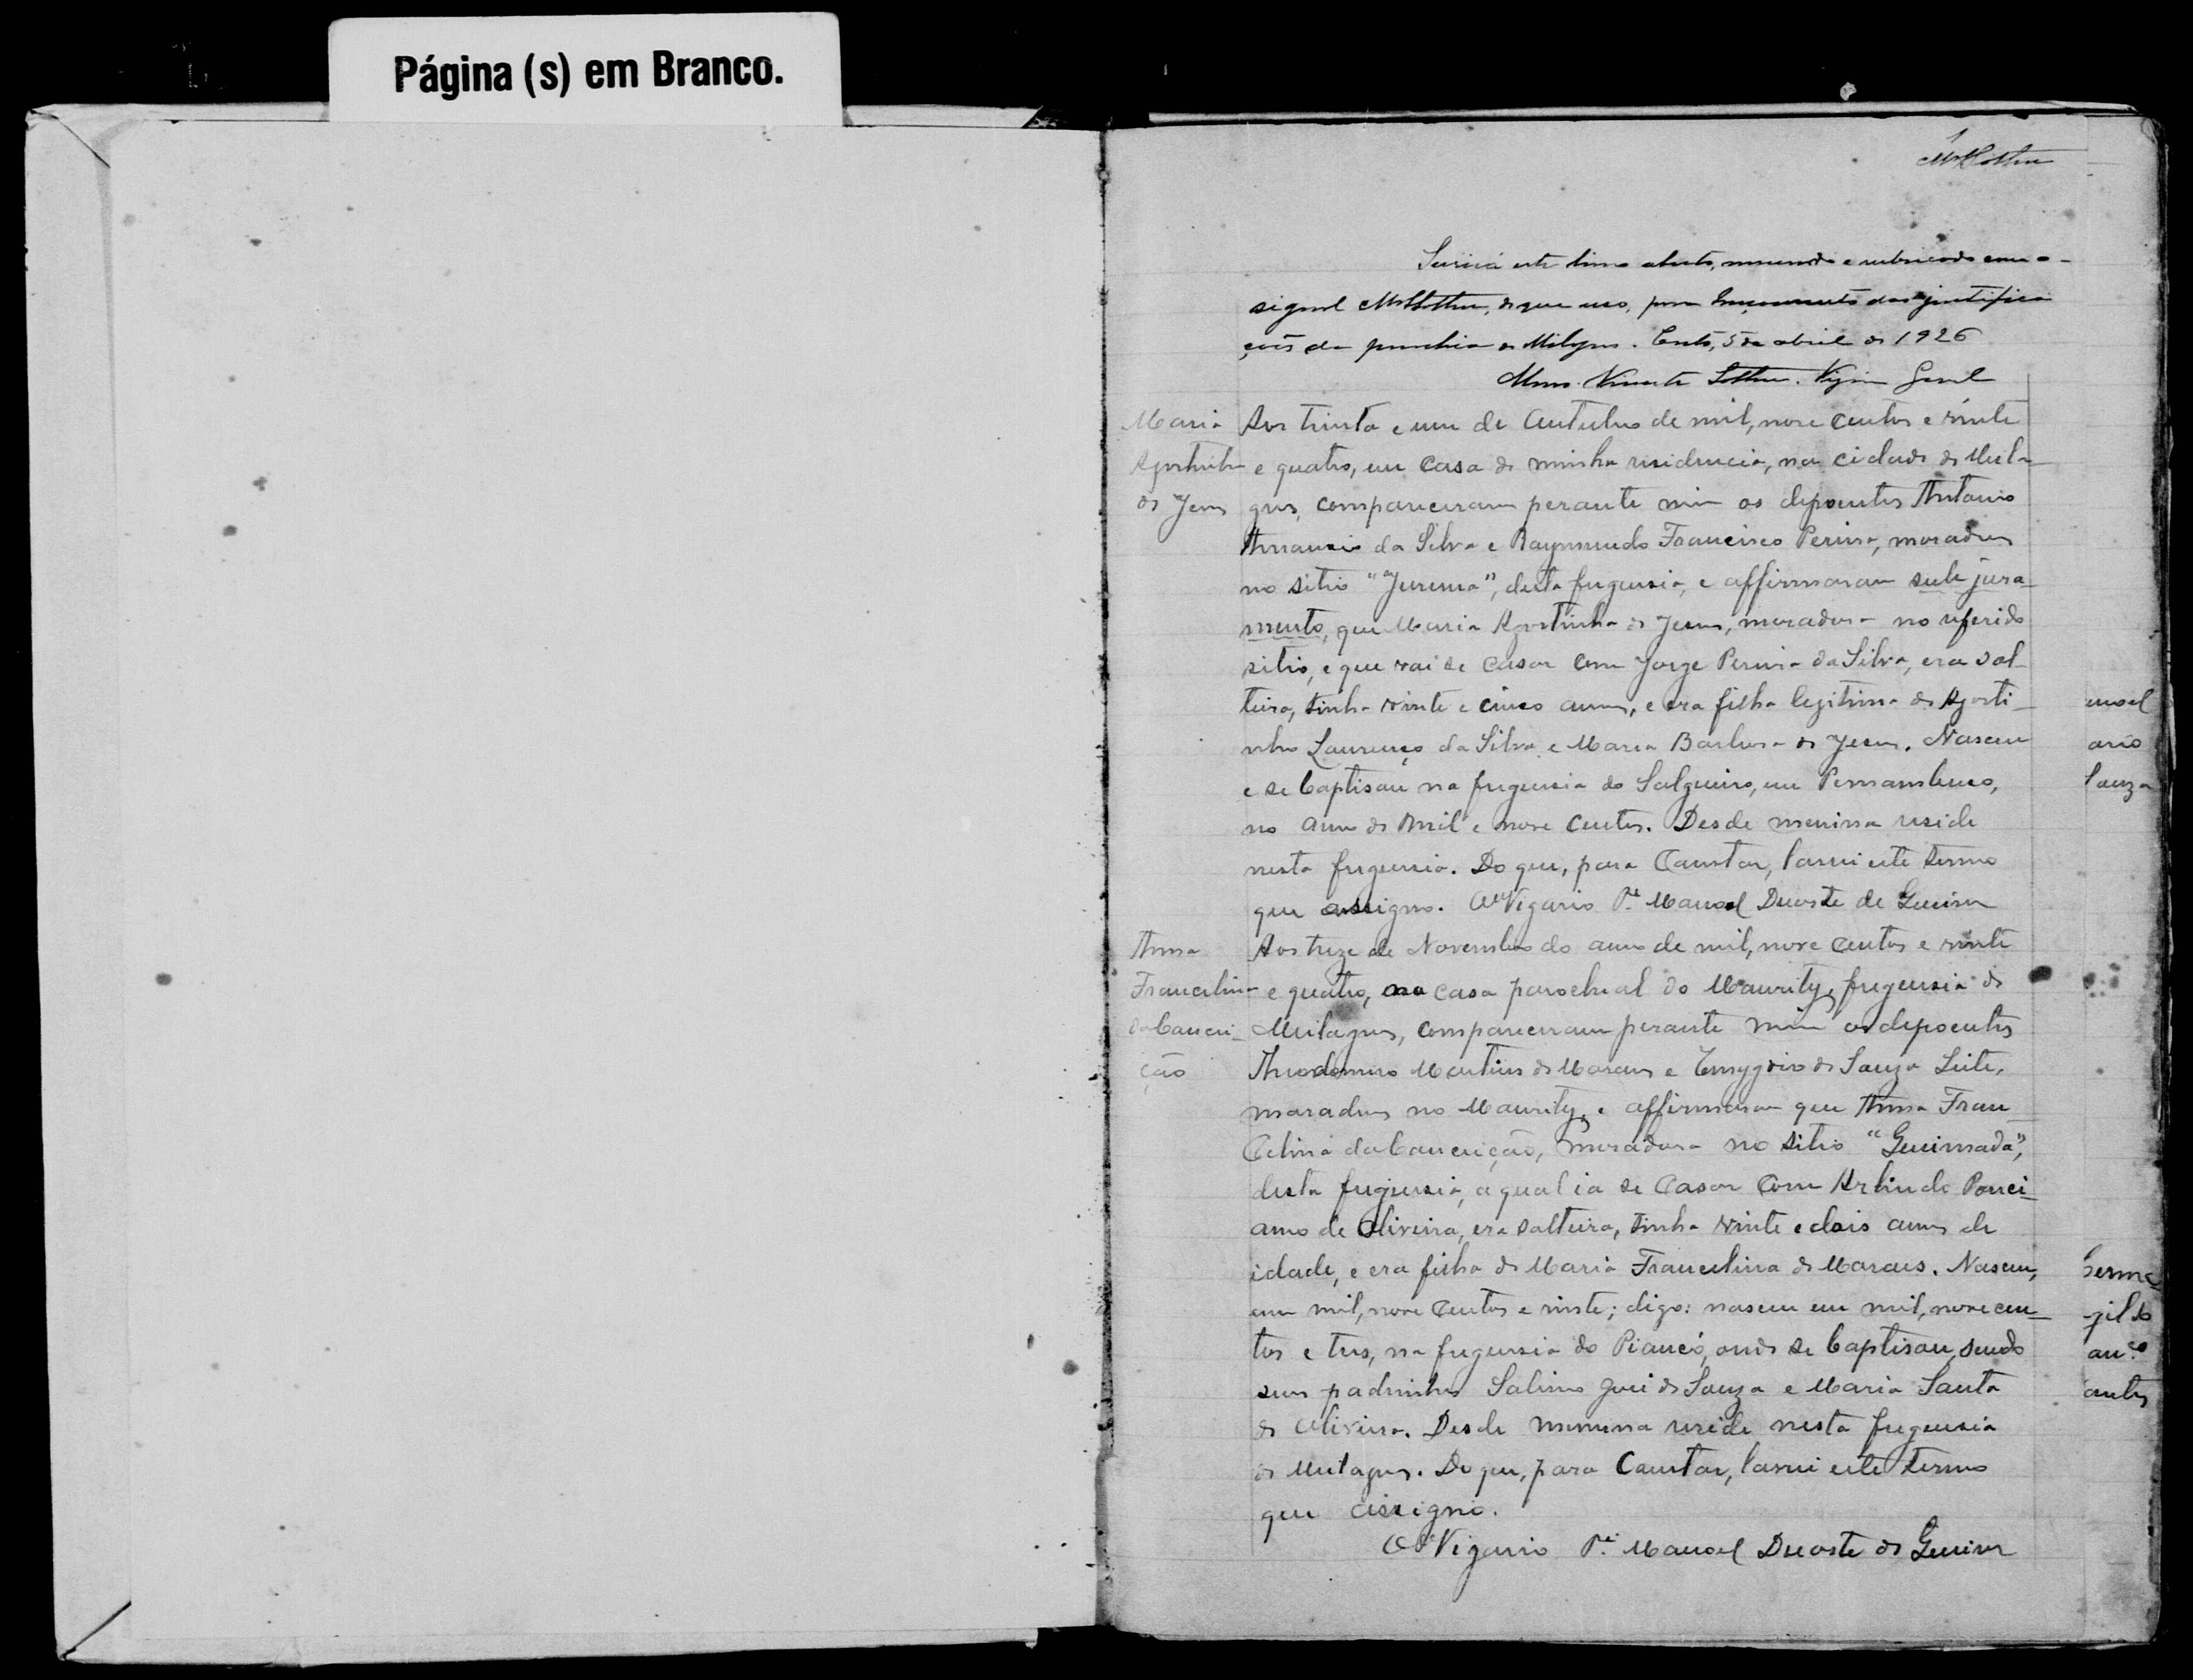 Página (s) em Branco.
1
Servirá este livro aberto, numerado e rubricado com o
signal MVSother, de que uso, para lançamento das justifica
ções da parochia de Milagres. Crato, 5 de abril de 1926
Mons. Vicente Sother. Vigario Geral
Maria
Agostinha
de Jesus
Aos trinta e um de Outubro de mil, nove centos e vinte
e quatro, em casa de minha residencia, na cidade de Mila-
gres, compareceram perante mim os depoentes Antonio
da Silva e Raymundo Francisco Pereira, moradores
no sitio "Jurema", desta freguesia, e affirmaram sub jura-
mento, que Maria Agostinha de Jesus, moradora no referido
sitio, e que vai se casar com Jorge Pereira da Silva, era sol-
teira, tinha vinte e cinco annos, e era filha legitima de Agosti-
nho Lourenço da Silva e Maria Barbosa de Jesus. Nasceu
e se baptisou na freguesia do Salgueiro, em Pernambuco,
no anno de mil e nove centos. Desde menina reside
nesta freguesia. Do que, para constar, lavrei este termo
que assigno. O Vigario Pe. Manoel
Anna
Francelina
da Concei-
ção
Aos treze de Novembro do anno de mil, nove centos e vinte
e quatro, na casa parochial do Maurity, freguesia de
Milagres, compareceram perante mim os depoentes
Theodomiro Martins de Moraes e Emygdio de Souza Leite,
moradores no Maurity, e affirmaram que Anna Fran-
celina da Conceição, moradora no sitio "Queimada",
desta freguesia, a qual ia se casar com Arlindo Ponci-
ano de Oliveira, era solteira, tinha vinte e dois annos de
idade, e era filha de Maria Francelina de Moraes. Nasceu,
em mil, nove centos e vinte; digo: nasceu em mil, nove cen-
tos e tres, na freguesia do Piancó, onde se baptisou, sendo
seus padrinhos Salino José de Souza e Maria Santa
de Oliveira. Desde menina reside nesta freguesia
de Milagres. Do que, para constar, lavrei este termo
que assigno.
O Vigario Pe. Manoel